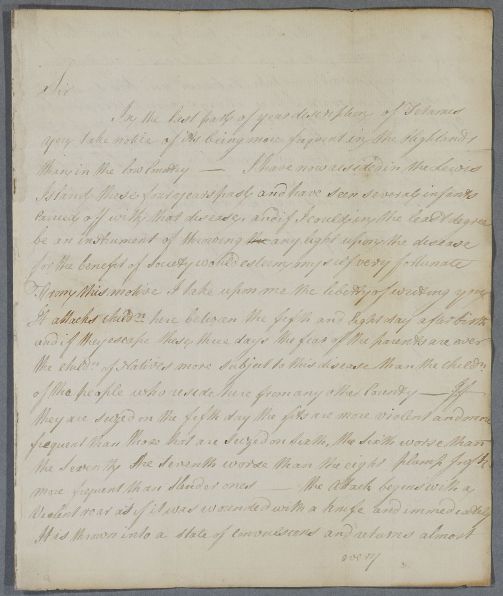 Sir
In the last part of your description of Tetanus
you take notice of its being more frequent in the Highlands
than in the low Country — I have now resided in the Lewis
Island these four years past and have seen several infants
carried off with that disease, and if I could in the least degree
be an instrument of throwing the any light upon the disease
for the benefit of society would esteem my self very fortunate
From this motive I take upon me the liberty of writing you
It attacks childn here between the fifth and Eight day after birth
and if they escape these three days the fears of the parents are over
the childn of Natives more subject to this disease than the childn
of the people who reside here from any other County — If
they are seized on the fifth day the fits are more violent and more
frequent than those that are seized on sixth, the sixth worse than
the Seventh the Seventh worse than the eight plump
more frequent than slender ones — the Attack begins with a
violent roar as if it was wounded with a knife and immediately
It is thrown into a state of convulsions and returns almost
every